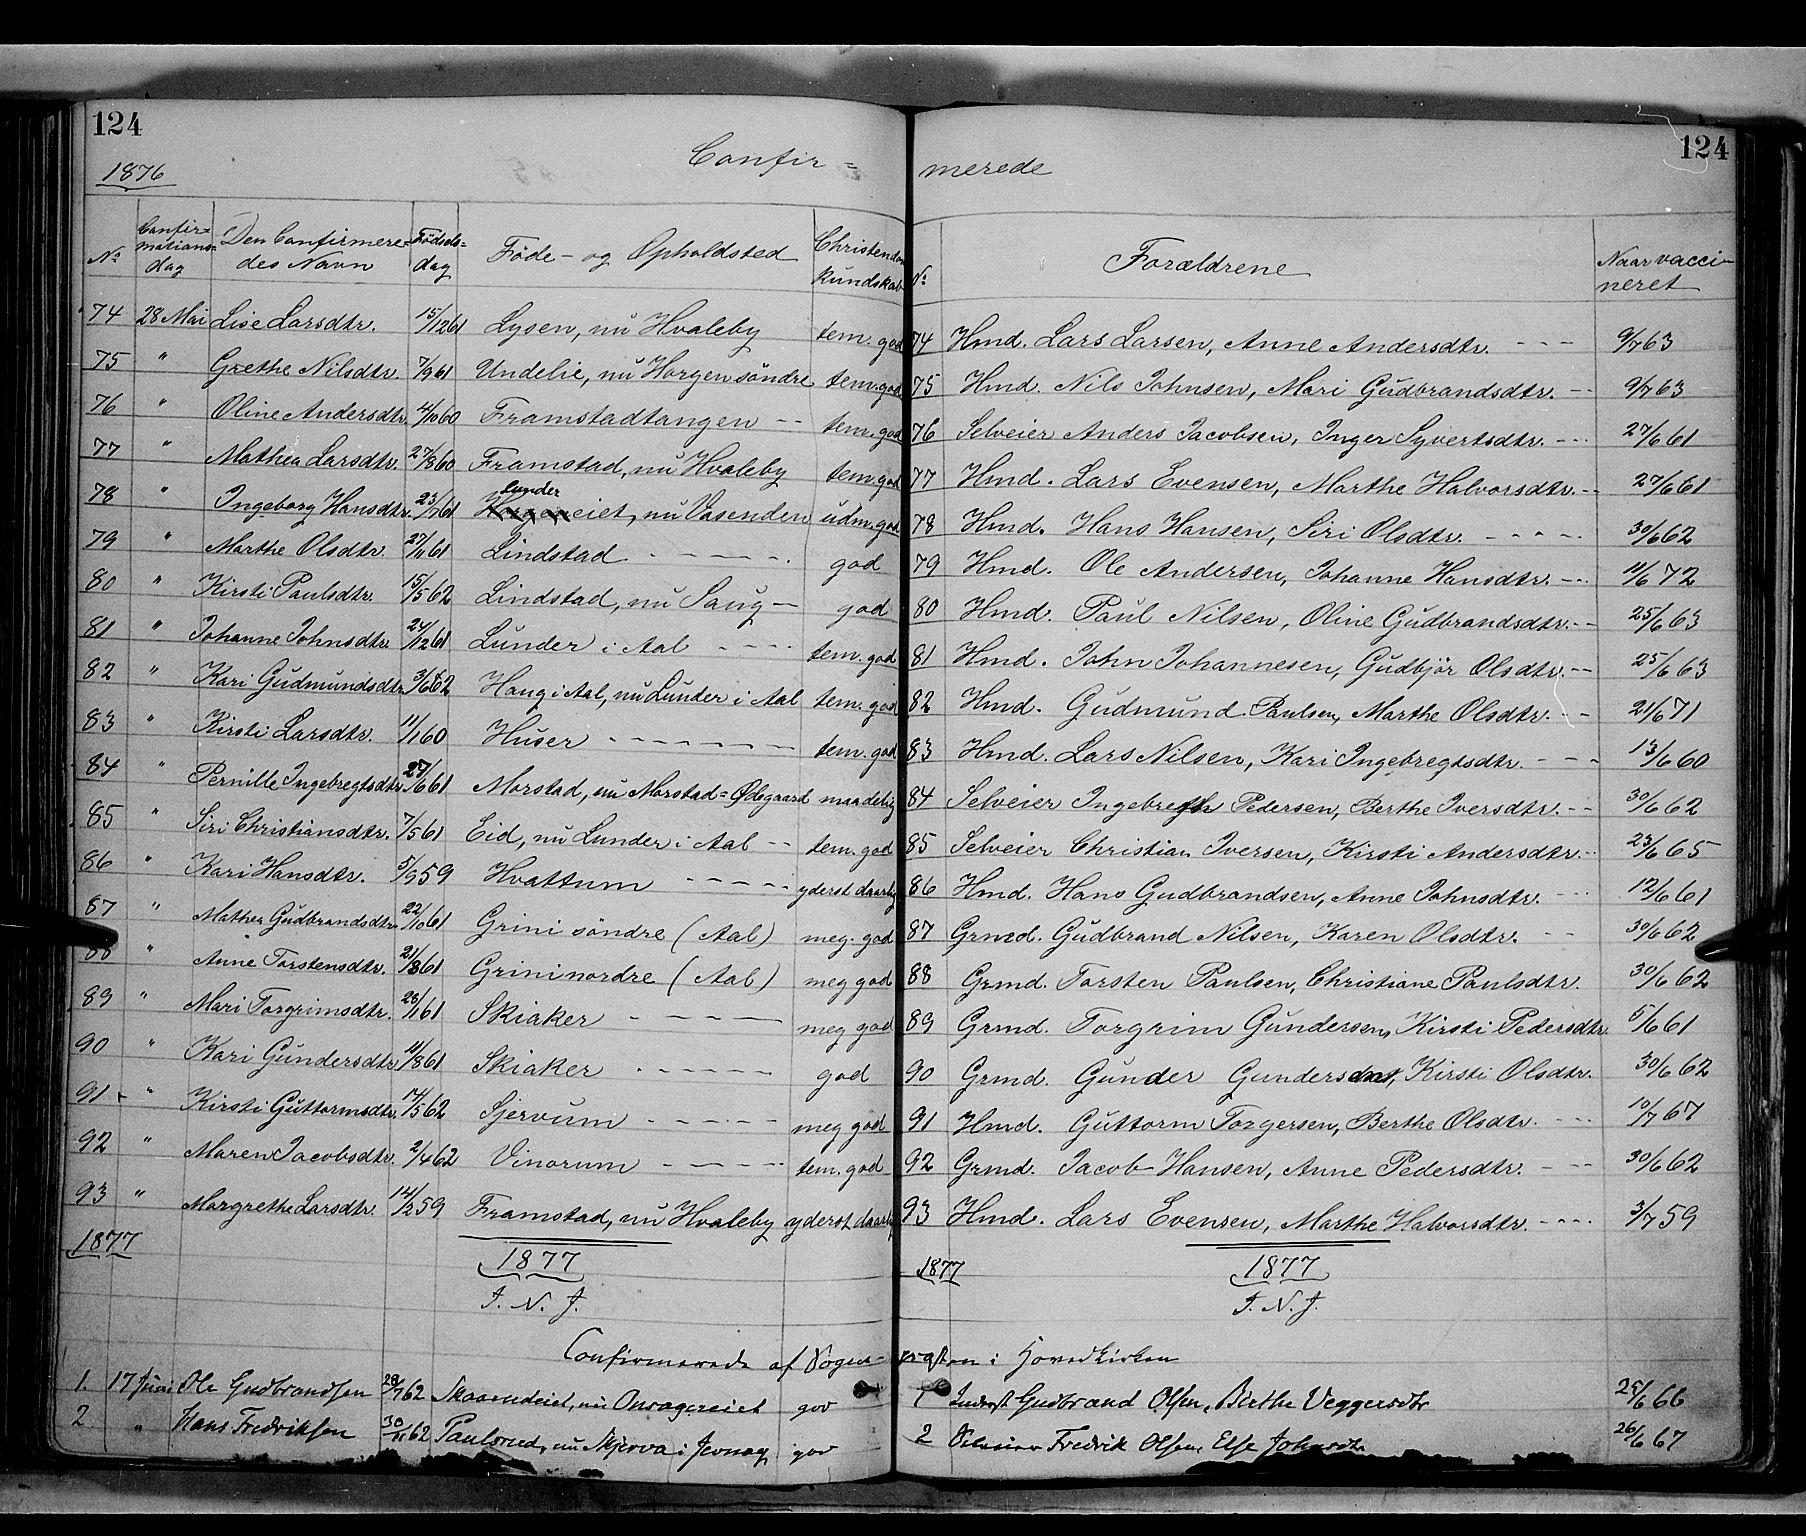 124
1876
Confir=
No
Confir=
mations=
dag
Den Confirmere=
des Navn
Födsels=
dag
Føde- og Opholdsted
Christendoms
Kundskab
74 28 Mai Lise Larsdtr. 15/12 61 Lysen, nu Hvaleby tem. god
75 " Grethe Nilsdtr. 7/9 61 Undelie, nu Horgen söndre tem. god
76 " Oline Andersdtr. 4/10 60 Framstadtangen -- tem. god
77 " Mathea Larsdtr. 27/8 60 Framstad, nu Hvaleby tem. god
lunder
78 " Ingeborg Hansdtr. 23/7 61 eiet, nu Vasenden udm. god
79 " Marthe Olsdtr. 27/11 61 Lindstad - - - - - god
80 " Kirsti Paulsdtr. 15/5 62 Lindstad, nu Saug - god
81 " Johanne Johnsdtr. 24/12 61 Lunder i Aal - - - - tem. god
82 " Kari Gudmundsdtr. 3/6 62 Haug i Aal, nu Lunder i Aal tem. god
83 " Kirsti Larsdtr. 11/1 60 Huser - - - - - - - tem. god
84 " Pernille Ingebregtsdtr. 27/6 61 Morstad, nu Morstad=Ødegaard maadelig
85 " Siri Christiansdtr. 7/5 61 Eid, nu Lunder i Aal -- tem. god
86 " Kari Hansdtr. 5/9 59 Hvattum - - - - - yderst daarlig
87 " Mathea Gudbrandsdtr. 22/10 61 Grini söndre (Aal) meg. god
88 " Anne Torstensdtr. 21/8 61 Grini nordre (Aal) meg god
89 " Mari Torgrimsdtr. 28/1 61 Skiaker - - - - - meg god
90 " Kari Gundersdtr. 11/8 61 Skiaker - - - - - - god
91 - " Kirsti Guttormsdtr. 14/5 62 Sjervum - - - - - - meg god
92 " Maren Jacobsdtr. 2/4 62 Vinorum - - - - - tem. god
93 " Margrethe Larsdtr. 14/2 59 Framstad, nu Hvaleby yderst daarlig
1877
1877
I. N. J.
Confirmerede af Sogne=
1. 17 Juni Ole Gudbrandsen 28/7 62 nu Onsagereiet god
2 " Hans Fredriksen 30/11 62 Paulsrud, nu Skjerva i Jevnag god
124
merede
No
Forældrene
Naar vacci-
neret
74 Hmd. Lars Larsen, Anne Andersdtr. - - - 9/7 63
75 Hmd. Nils Johnsen, Mari Gudbrandsdtr. -- 9/7 63
76 Selveier Anders Jacobsen, Inger Syvertsdtr. - - - 27/6 61
77 Hmd. Lars Evensen, Marthe Halvorsdtr. -- 27/6 61
78 Hmd. Hans Hansen, Siri Olsdtr. - - - - - 30/6 62
79 Hmd. Ole Andersen, Johanne Hansdtr. - - 11/6 72
80 Hmd. Paul Nilsen, Oline Gudbrandsdtr. -- 25/6 63
81 Hmd. John Johannesen, Gudbjör Olsdtr. -- 25/6 63
82 Hmd. Gudmund Paulsen, Marthe Olsdtr. - - 21/6 71
83 Hmd. Lars Nilsen, Kari Ingebregtsdtr. - - - 13/6 60
84 Selveier Ingebreth Pedersen, Berthe Iversdtr. -- 30/6 62
85 Selveier Christian Iversen, Kirsti Andersdtr. - 23/6 65
86 Hmd. Hans Gudbrandsen, Anne Johnsdtr. - - - 12/6 61
87 Grmd. Gudbrand Nilsen, Karen Olsdtr. -- 30/6 62
88 Grmd. Torsten Paulsen, Christiane Paulsdtr. 30/6 62
89 Grmd. Torgrim Gundersen, Kirsti Pedersdtr. 5/6 61
90 Grmd. Gunder Gundersen, Kirsti Olsdtr. 30/6 62
91 Hmd. Guttorm Torgersen, Berthe Olsdtr. - - - 10/7 67
92 Grmd. Jacob Hansen, Anne Pedersdtr. - - - 30/6 62
93 Hmd. Lars Evensen, Marthe Halvorsdtr. - - - - 3/7 59
1877
1877
I. N. J.
præsten i Hovedkirken
1 Inderst Gudbrand Olsen, Birthe Veggersdtr 25/6 66
2 Selveier Fredrik Olsen, Else Johnsdtr 26/6 67